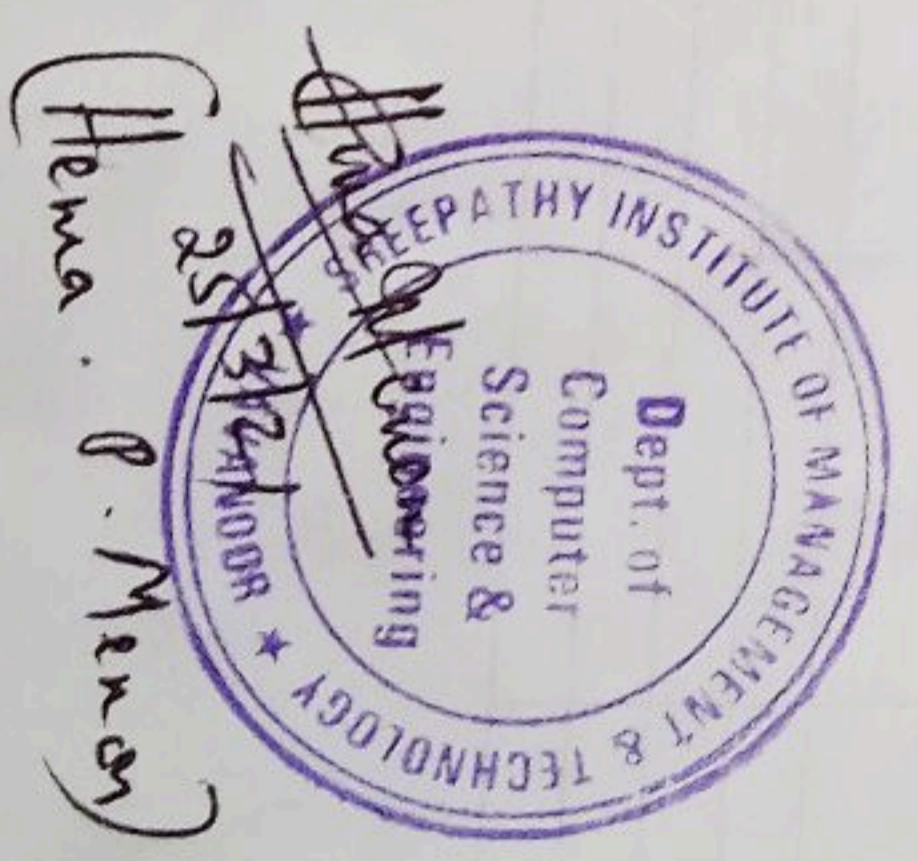 SREEPATHY INSTITUTE OF MANAGEMENT & TECHNOLOGY
Dept. of
Computer
Science &
Engineering
25/3/21
(Hema . P. Menon)